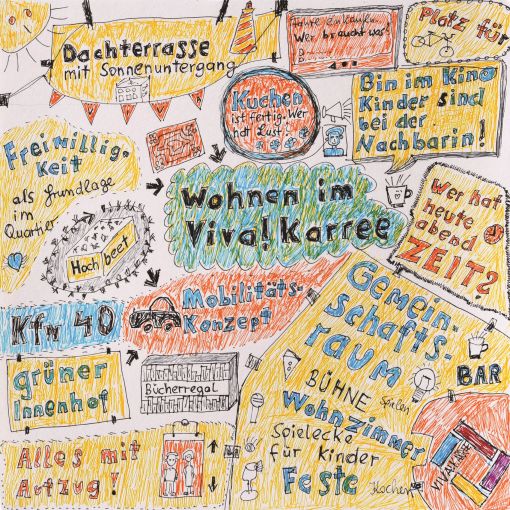 Dachterrasse
mit Sonnenuntergang
Wer braucht was?
Platz für
Kuchen
ist fertig. Wer
hat Lust?
Bin im Kino
Kinder sind
bei der
Nachbarin!
Freiwillig-
keit
als Grundlage
im
Quartier
Hochbeet
Wohnen im
Viva! Karree
Wer hat
heute
abend
ZEIT?
KfW 40
Mobilitäts-
Konzept
Gemein-
schafts-
raum
BAR
BÜHNE
Spielen
Wohnzimmer
Spielecke
für Kinder
Feste
Kochen
grüner
Innenhof
Bücherregal
Alles mit
Aufzug!